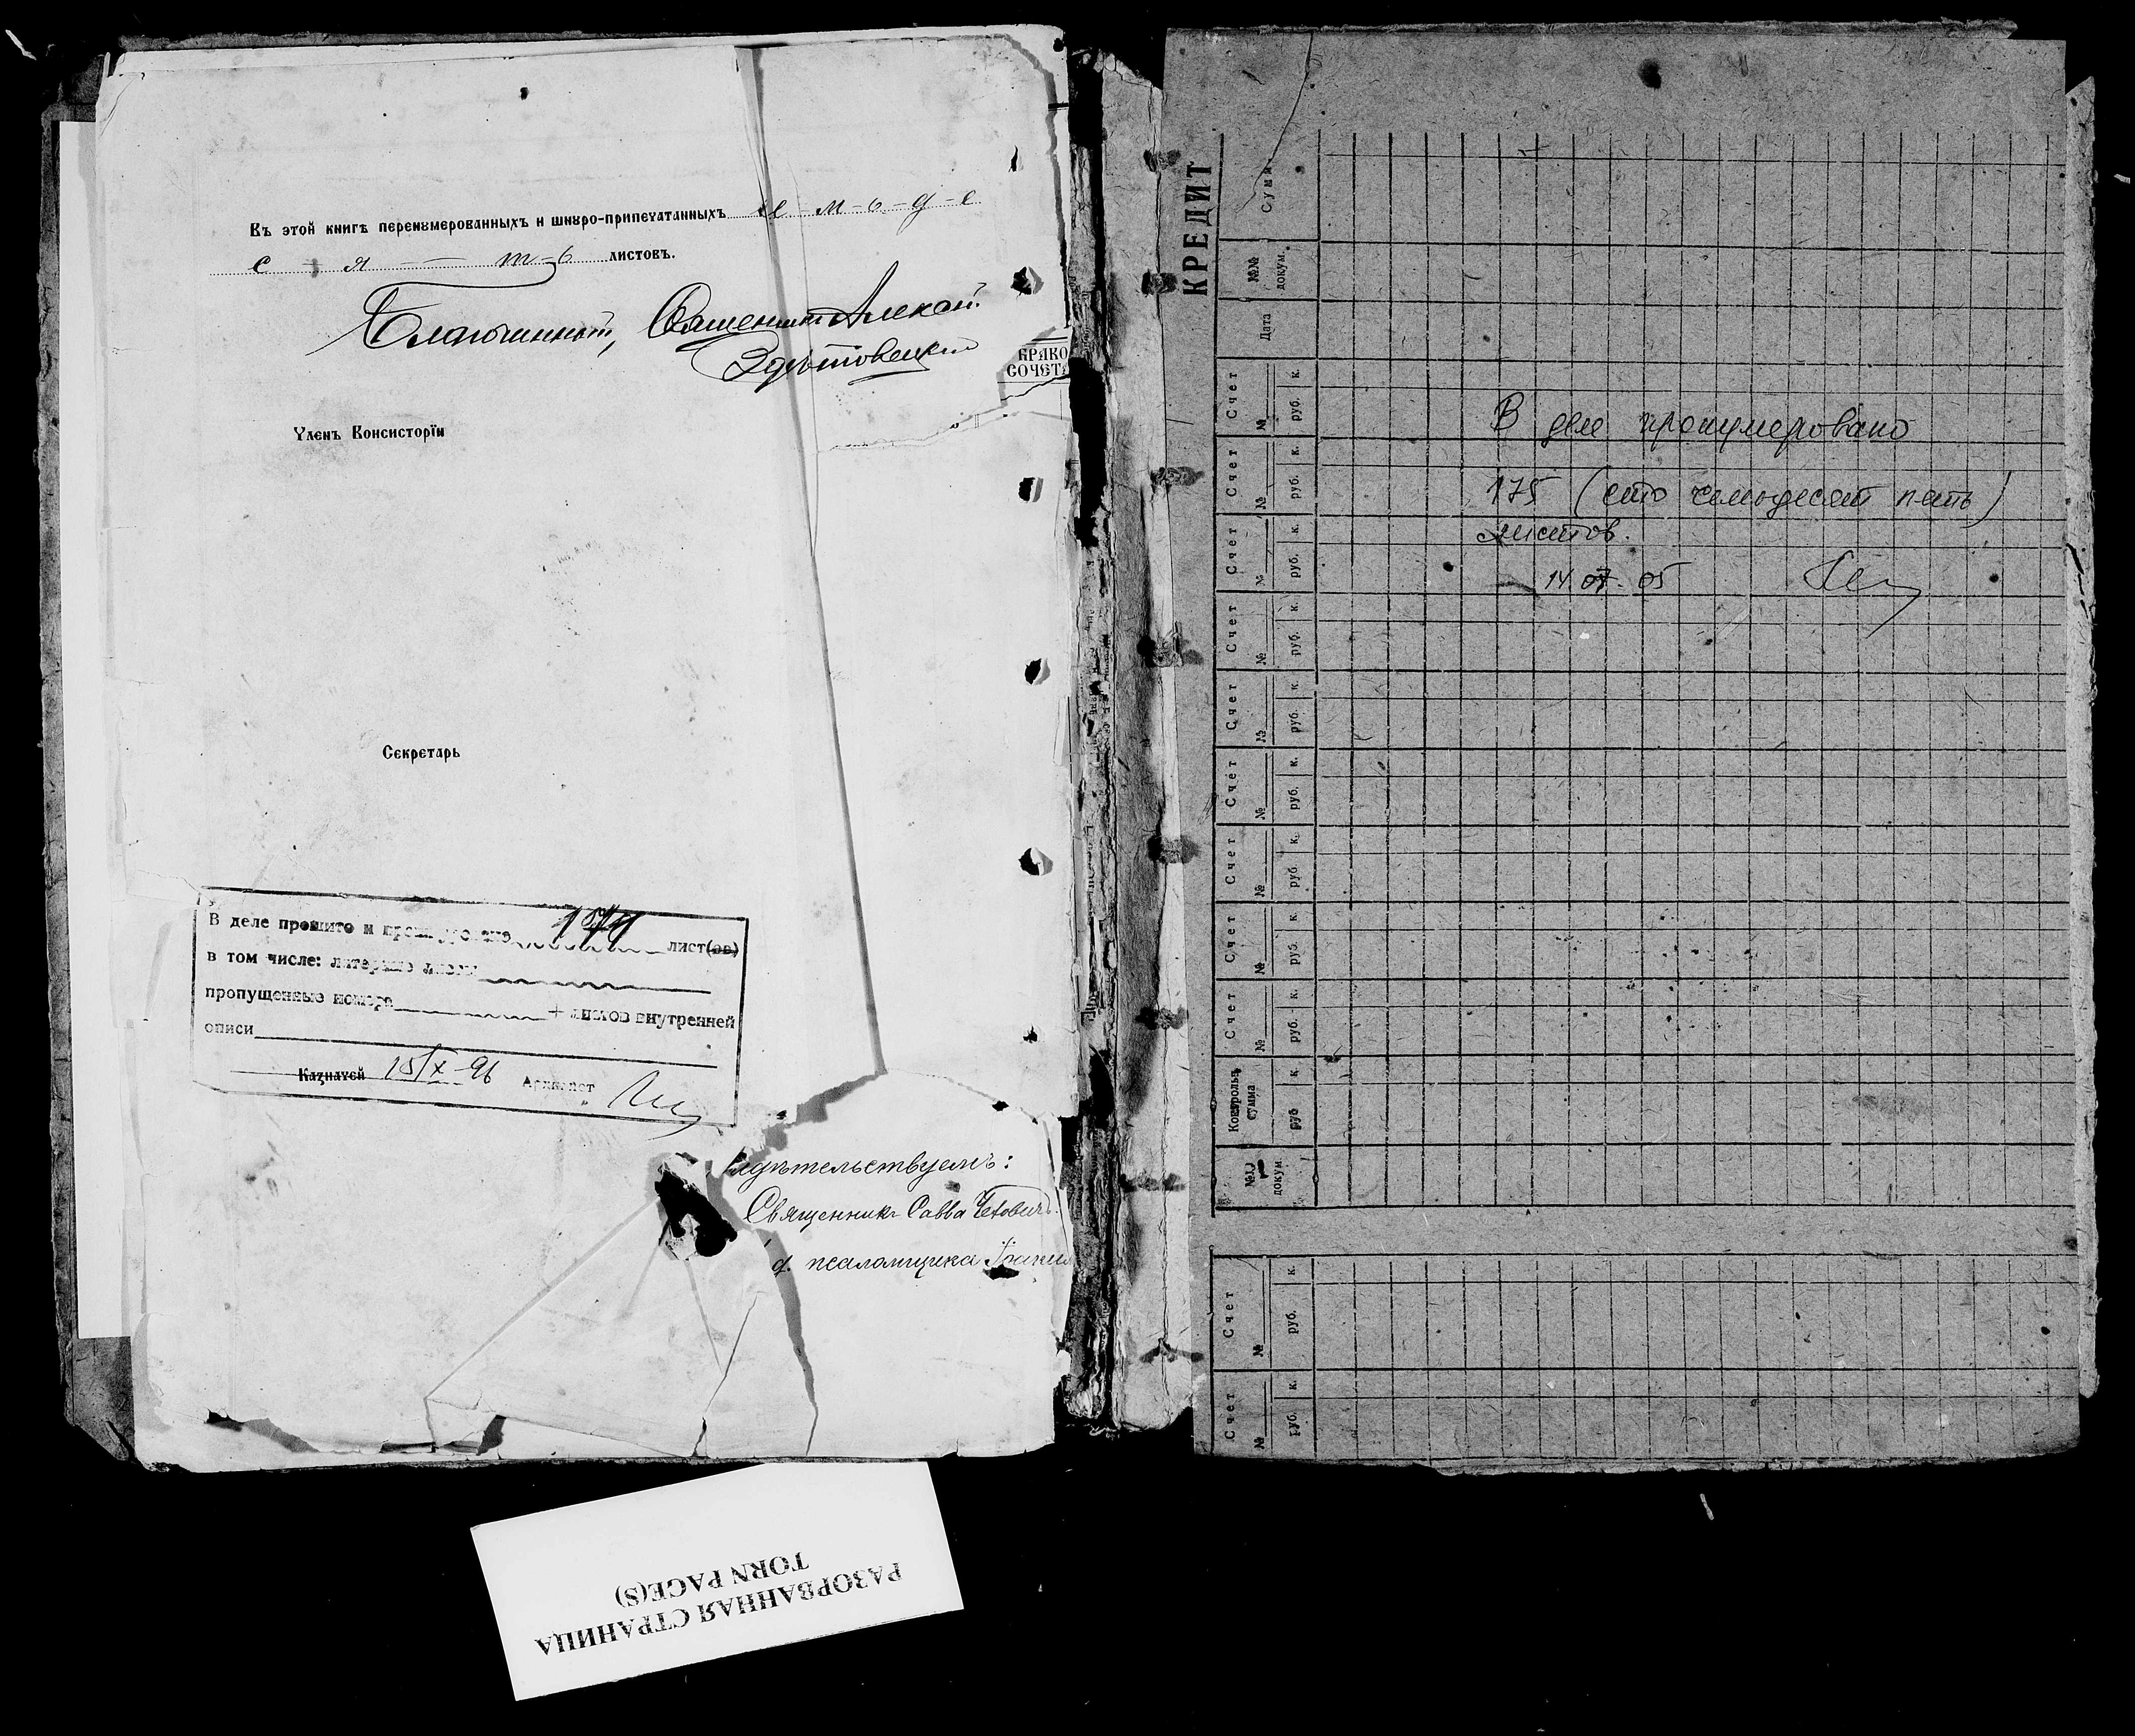 Въ этой книгѣ перенумерованныхъ и шнуро-припечатанныхъ с е - м - ь - д - е
с - я - т - ь листовъ.
Благочинный, Священникъ Алексѣй
БРАКО
СОЧЕТА
Членъ Консисторіи
Секретарь
В деле прошито и пронумеровано 174 лист(ов)
в том числе: литерные листы
пропущенные номера + листов внутренней
описи
Казначей 15/X-96 Архивист
идѣтельствуемъ:
Священникъ Савва
д. псаломщика
КРЕДИТ
Сумма
№№ докум.
Дата
Счет № руб. к.
Счет № руб. к.
Счет № руб. к.
Счет № руб. к.
Счет № руб. к.
Счет № руб. к.
Счет № руб. к.
Счет № руб. к.
Счет № руб. к.
Контрольн. сумма руб. к.
№№ докум.
Счет № руб. к.
Счет № руб. к.
В деле пронумеровано
175 (сто семьдесят пять)
листов.
14.07.05
РАЗОРВАННАЯ СТРАНИЦА
TORN PAGE(S)